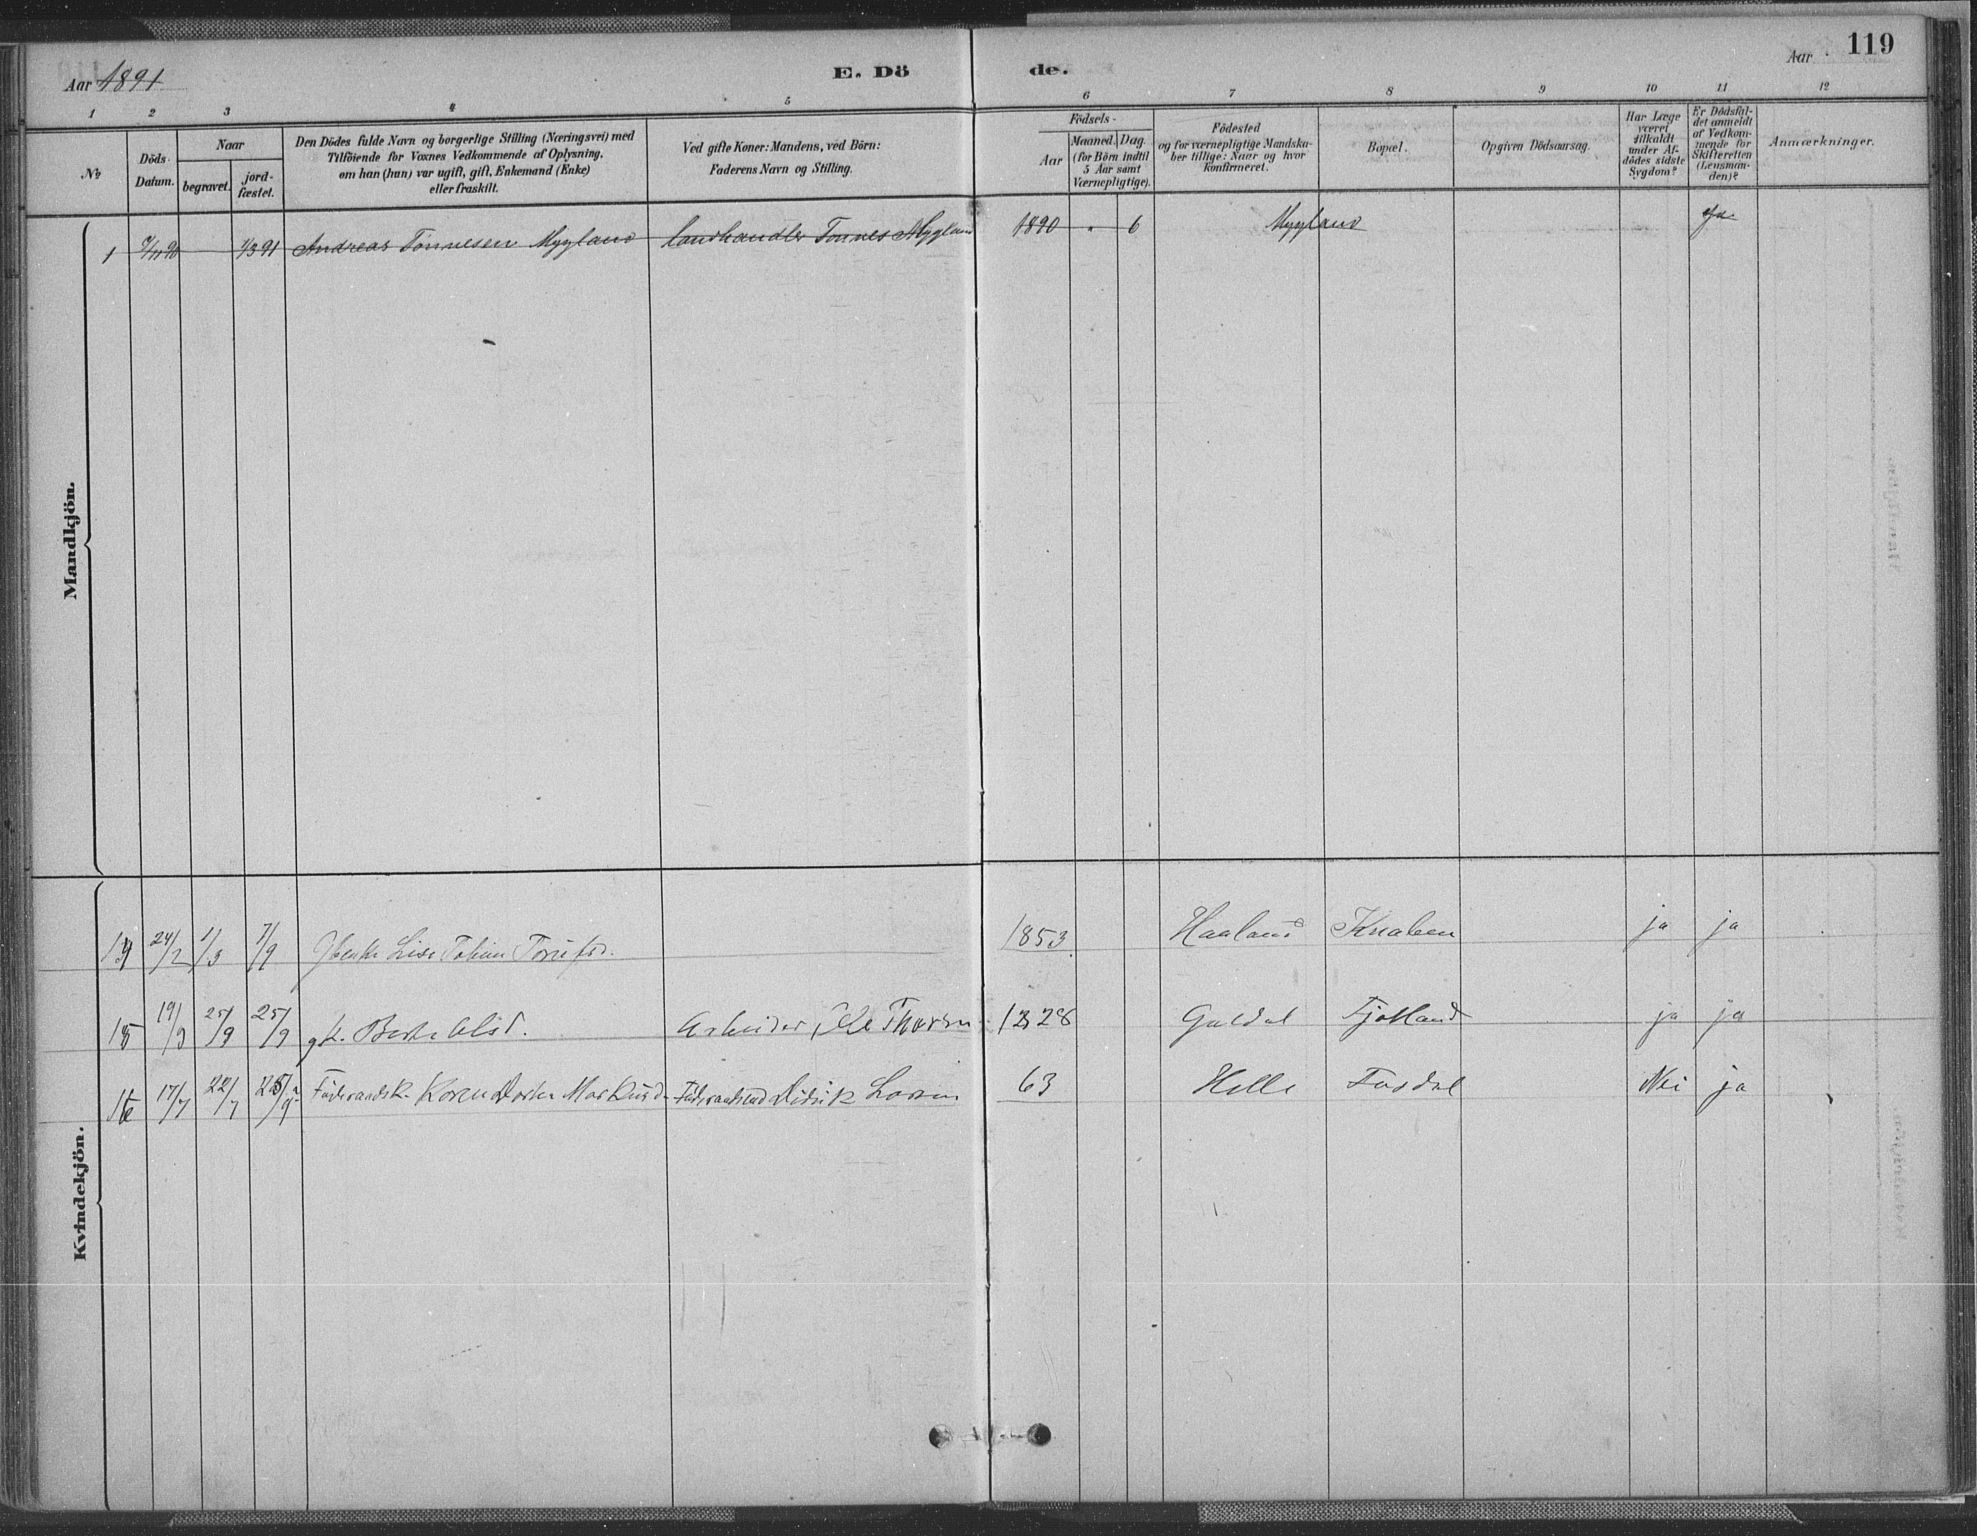 Aar 1891
E. Dö
de.
Aar
119
1 2 3 4 5 6 7 8 9 10 11 12
No
Döds Datum.
Naar
begravet.
jord-fæstet.
Den Dödes fulde Navn og borgerlige Stilling (Næringsvei) med
Tilföiende for Voxnes Vedkommende af Oplysning,
om han (hun) var ugift, gift, Enkemand (Enke)
eller fraskilt.
Ved gifte Koner: Mandens, ved Börn:
Faderens Navn og Stilling.
Födsels-
Aar
Maaned. Dag.
(for Börn indtil
5 Aar samt
Værnepligtige).
Födested
og for værnepligtige Mandska-
ber tillige: Naar og hvor
konfirmeret.
Bopæl.
Opgiven Dödsaarsag.
Har Læge
været
tilkaldt
under Af-
dödes sidste
Sygdom?
Er Dödsfal-
det anmeldt
af Vedkom-
mende for
Skifteretten
(Lensman-
den)?
Anmærkninger.
Mandkjön.
1 Andreas Tönnesen Mygland Landhandler Tönnes Mygland 1890 " 6 Mygland ja
Kvindekjön.
24/2 1/3 7/9 Lise Tobine 1853 Haaland Knaben ja ja
15 19/9 25/9 25/9 gk. Arbeider Ole 28 Galdal Fjotland ja ja
16 17/7 22/7 Föderaadsk. Karen Dorthea Markusd. Föderaadsmd Didrik Larsen 63 Helle Fosdal Nei ja